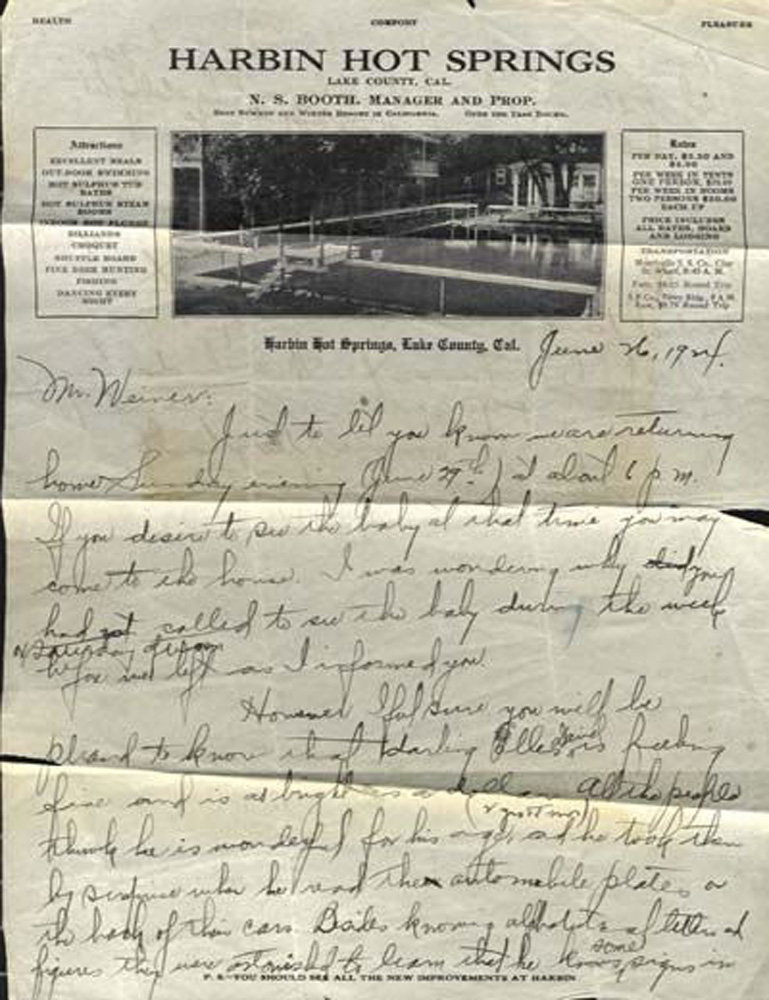 HEALTH COMFORT PLEASURE
HARBIN HOT SPRINGS
LAKE COUNTY, CAL.
N. S. BOOTH, MANAGER AND PROP.
BEST SUMMER AND WINTER RESORT IN CALIFORNIA. OPEN THE YEAR ROUND.
Attractions
EXCELLENT MEALS
OUT-DOOR SWIMMING
HOT SULPHUR TUB
BATHS
HOT SULPHUR STEAM
ROOMS
INDOOR HOT PLUNGE
BILLIARDS
CROQUET
SHUFFLE BOARD
FINE DEER HUNTING
FISHING
DANCING EVERY
NIGHT
Rates
PER DAY, AND
PER WEEK IN TENTS
ONE PERSON,
PER WEEK IN ROOMS
TWO PERSONS
EACH UP
PRICE INCLUDES
ALL BATHS, BOARD
AND LODGING
TRANSPORTATION
Round Trip
Round Trip
Harbin Hot Springs, Lake County, Cal. June 26, 1924.
Mr. Weiner:
Just to let you know we are returning
home Sunday evening (June 29th) at about 6 p.m.
If you desire to see the baby at that time you may
come to the house. I was wondering why did you
had not called to see the baby during the week
or Saturday
before we left as I informed you.
However I feel sure you will be
pleased to know that darling is feeling
fine and is as bright as a dollar. All the people
(& most men)
think he is wonderful for his age, and he took them
by surprise when he read the automobile plates on
the back of their cars. Besides knowing alphabets of letters and
figures they were astonished to learn that he knows some signs in
P. S.—YOU SHOULD SEE ALL THE NEW IMPROVEMENTS AT HARBIN